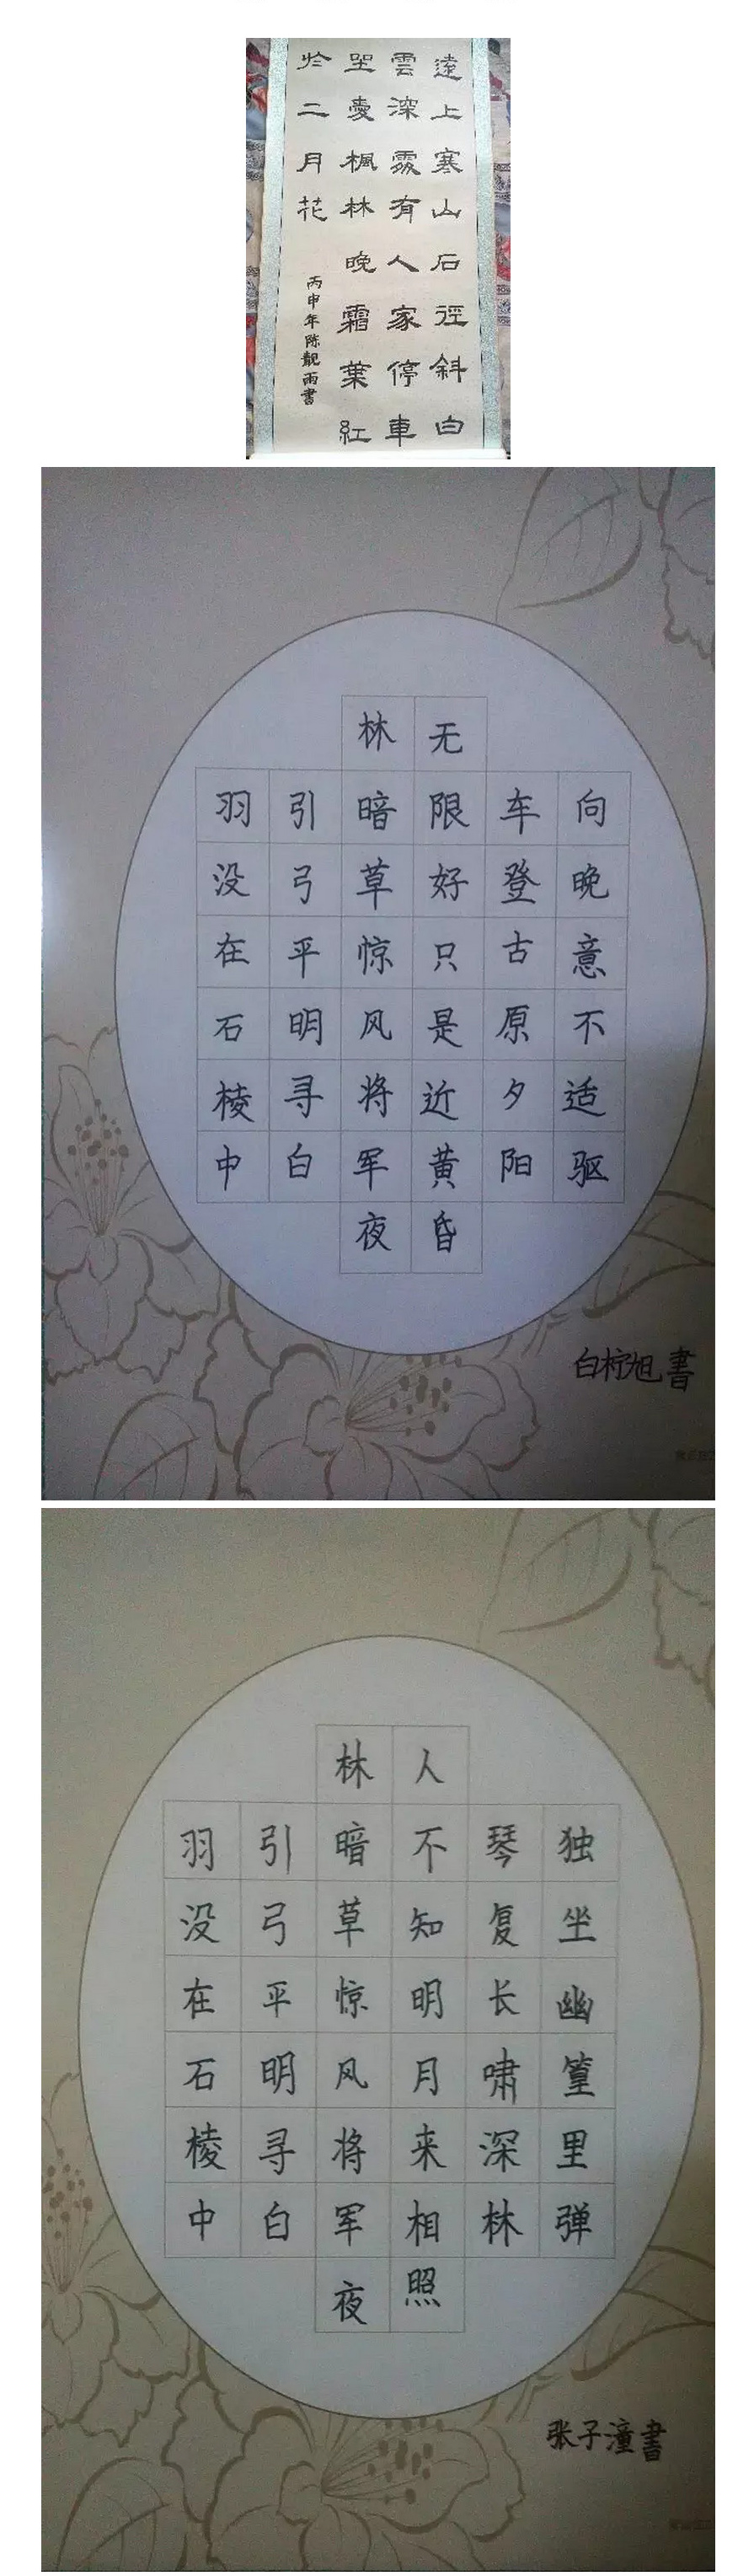 遠上寒山石徑斜白
雲深處有人家停車
坐愛楓林晚霜葉紅
於二月花
丙申年陈靚雨書
向晚意不适驱
车登古原夕阳
无限好只是近黄昏
林暗草惊风将军夜
引弓平明寻白
羽没在石棱中
白柠旭書
独坐幽篁里弹
琴复长啸深林
人不知明月来相照
林暗草惊风将军夜
引弓平明寻白
羽没在石棱中
张子潼書